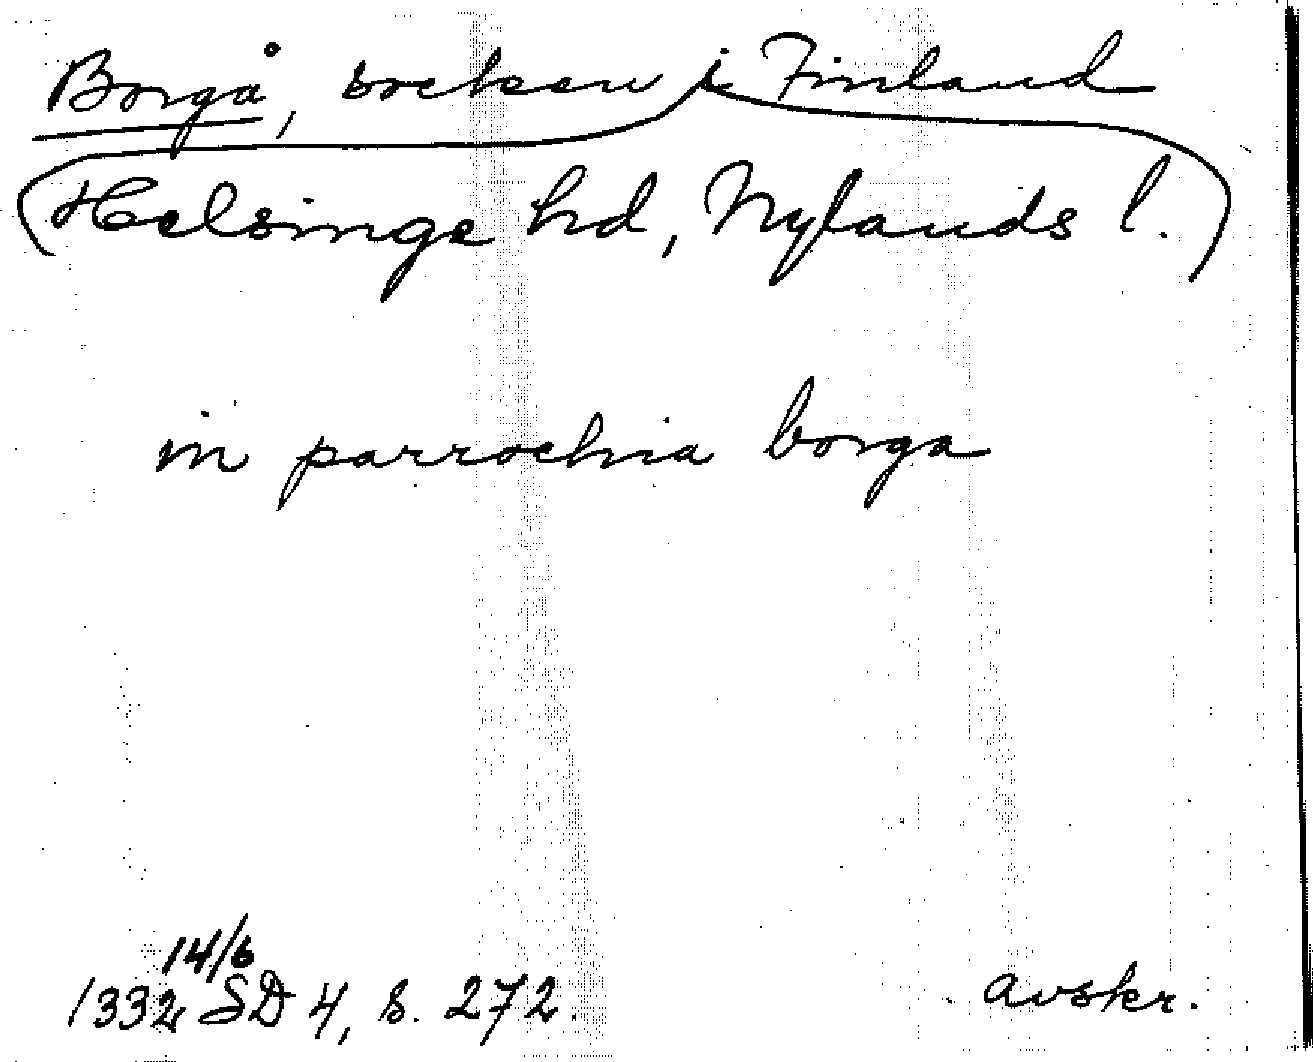 Borgå, socken i Finland
(Helsinge hd, Nylands l.)
in parrochia borga
14/6
1332 SD 4, s. 272.
avskr.